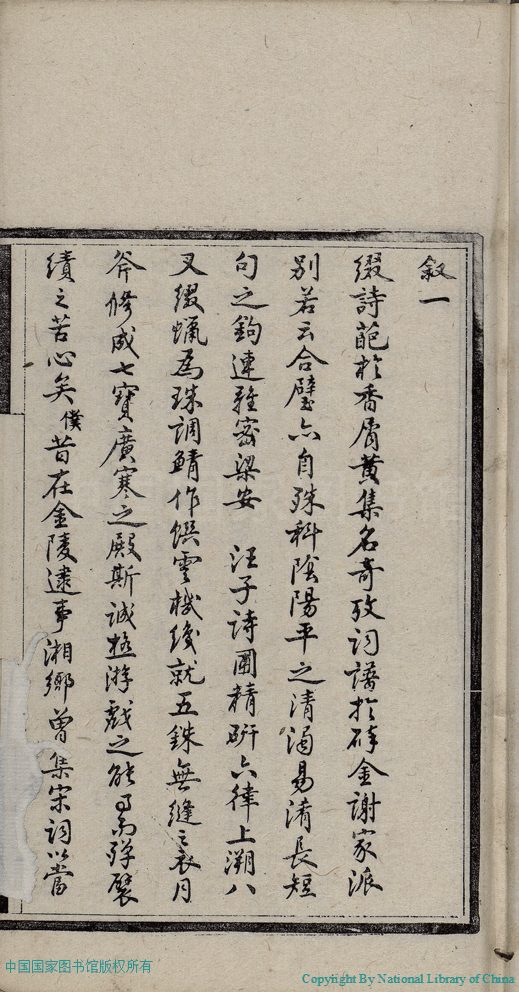 敘一
綴詩葩於香屑黄集名奇攷詞譜於碎金謝家派
别若云合璧六自殊科陰陽平之清濁易淆長短
句之鉤連雖密梁安 汪子詩圃精研六律上溯八
叉綴蠟為珠調鯖作饌雲機織就五銖無縫之衣月
斧修成七寶廣寒之殿斯誠極游戲之能事而殫襞
績之苦心矣僕昔在金陵逮事湘鄉曾集宋詞以當
中国国家图书馆版权所有
Copyright By National Library of China